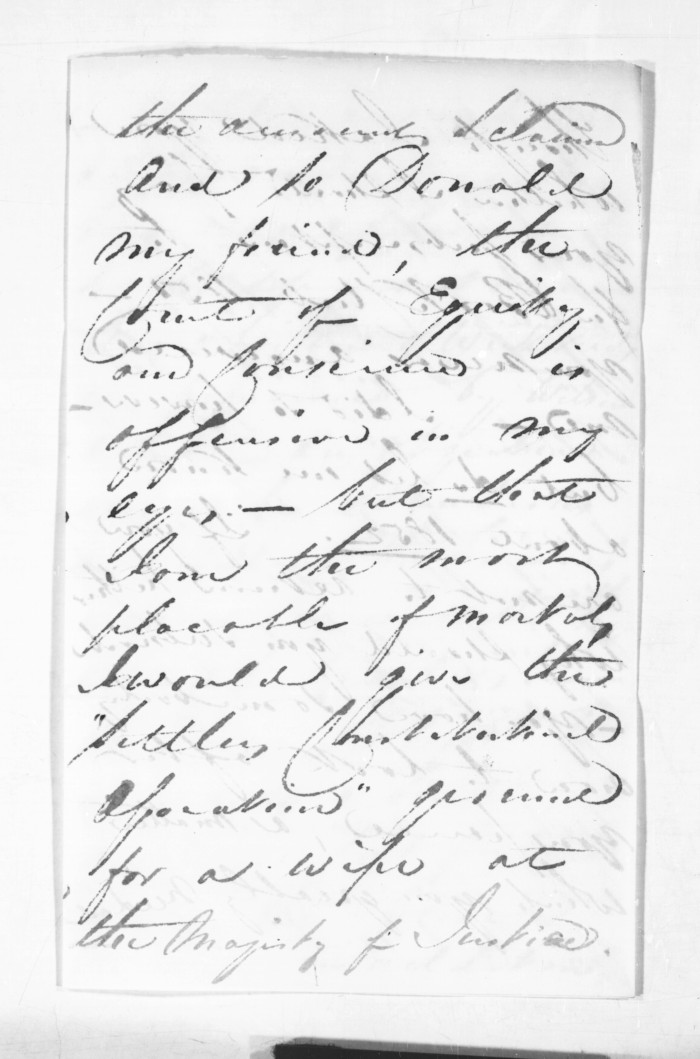 the amount I claim
And so Donald
my friend, the
Court of Equity
and Conscience is
offensive in my
eyes, — but that
I am the most
placable of mortals,
I would give the
"Settlers Constitutional
Association" ground
for a wipe at
the Majesty of Justice.